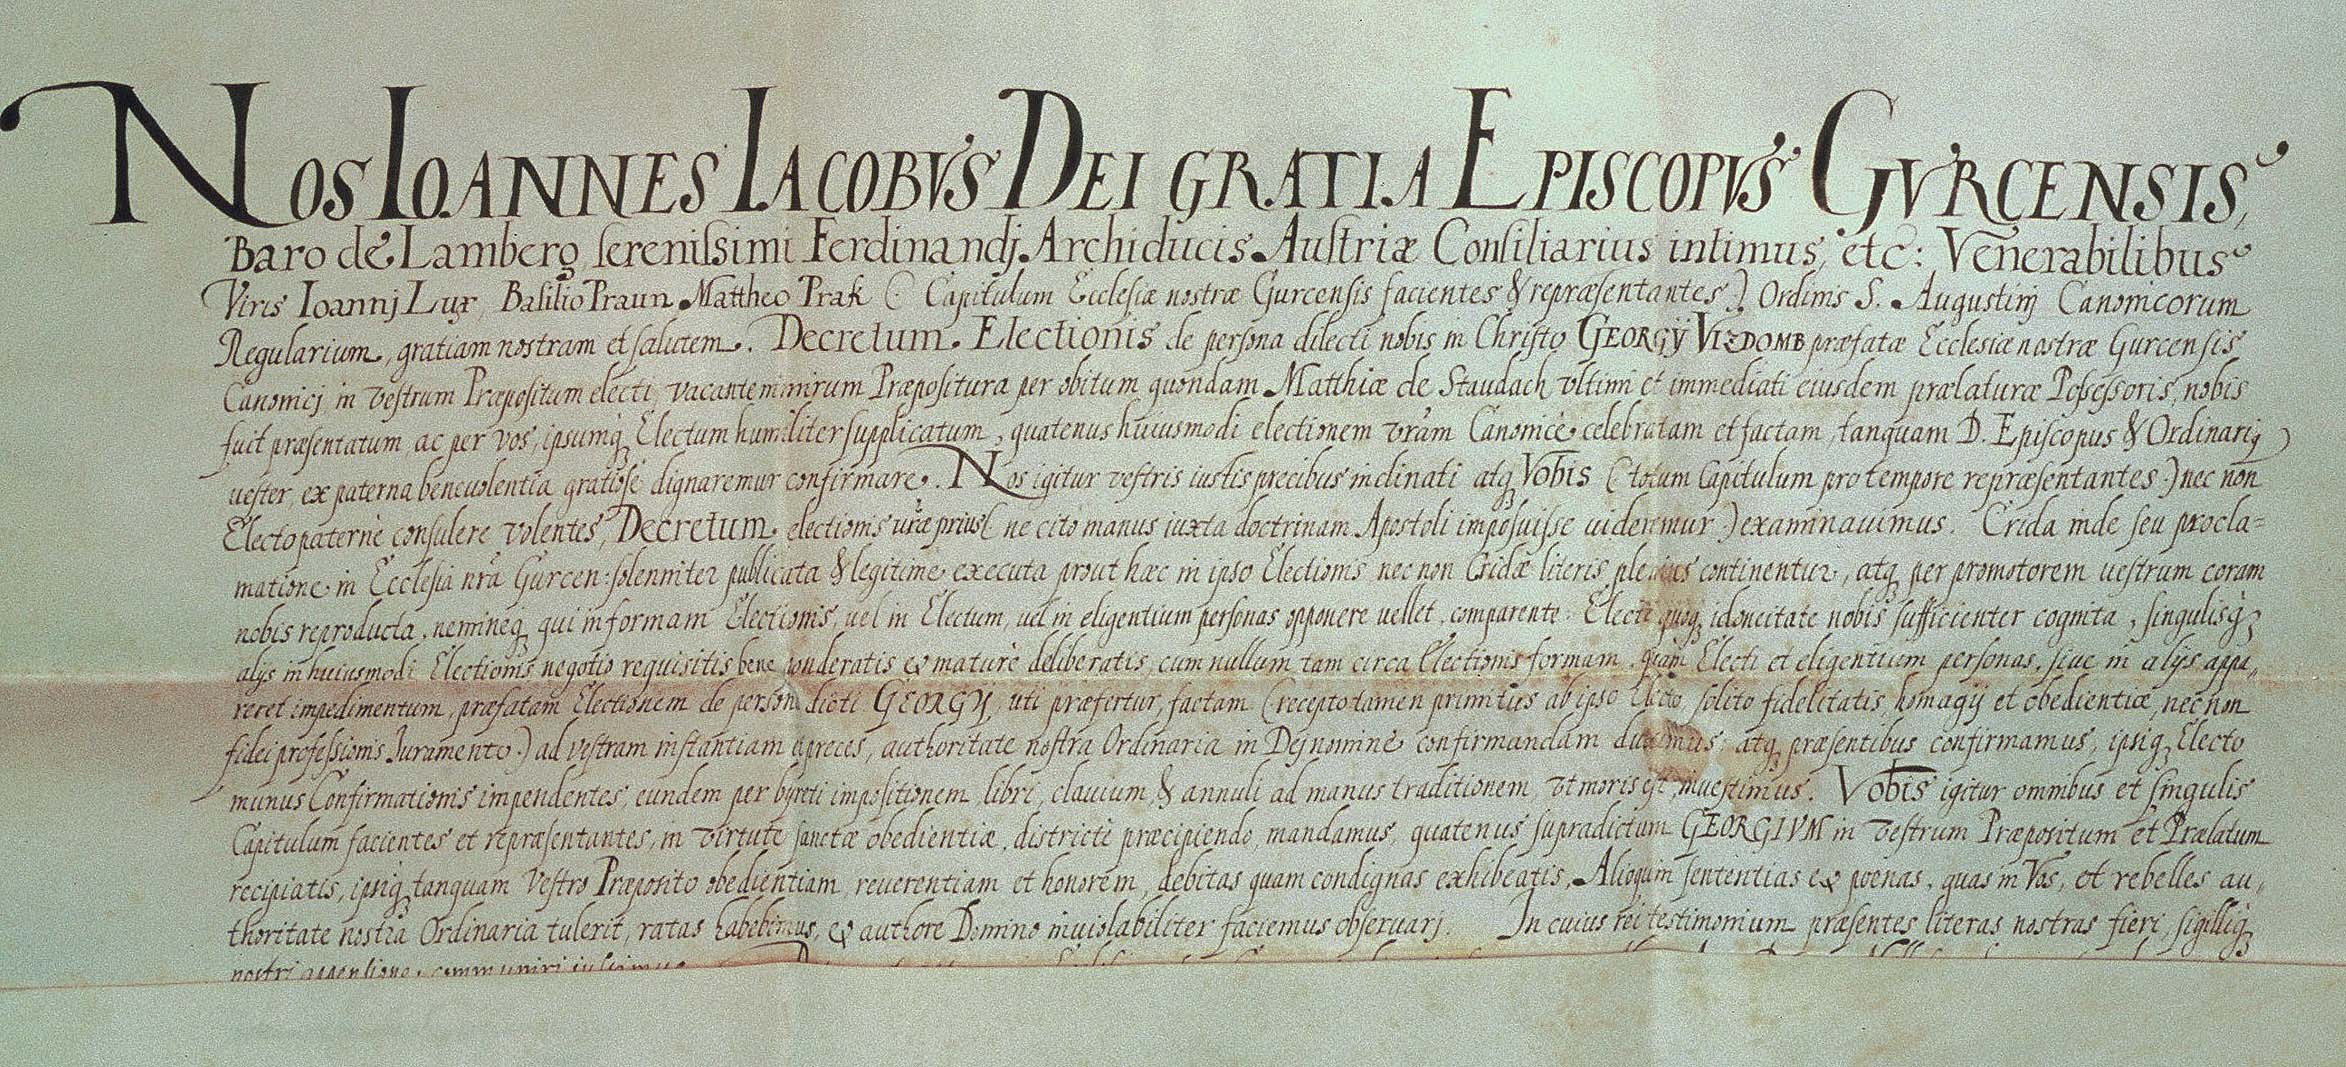 NOS IOANNES IACOBVS DEI GRATIA EPISCOPVS GVRCENSIS,
Baro de Lamberg serenissimi Ferdinandj Archiducis Austriæ Consiliarius intimus, etc: Venerabilibus
Viris Ioannj Lux, Basilio Praun Mattheo Prak (: Capitulum Ecclesiæ nostræ Gurcensis facientes & repræsentantes) Ordinis S. Augustinj Canonicorum
Regularium, gratiam nostram et salutem. Decretum Electionis de persona dilecti nobis in Christo GEORGIJ VIZDOMB præfatæ Ecclesiæ nostræ Gurcensis
Canonicj in vestrum Præpositum electi, vacante nimirum Præpositura per obitum quondam Matthiæ de Staudach vltimi et immediati eiusdem prælaturæ Possessoris, nobis
fuit præsentatum ac per vos, ipsumq Electum humiliter supplicatum, quatenus huiusmodi electionem vram Canonicè celebratam et factam, tanquam D. Episcopus & Ordinariq
uester, ex paterna beneuolentia gratiose dignaremur confirmare. Nos igitur vestris iustis precibus inclinati atq Vobis (totum Capitulum pro tempore repræsentantes) nec non
Electo paternè consulere volentes, Decretum electionis uræ prius (ne cito manus iuxta doctrinam Apostoli imposuisse uideremur) examinauimus. Crida inde seu procla=
matione in Ecclesia nra Gurcen: solenniter publicata & legitime executa prout hæc in ipso Electionis nec non Cridæ literis plenius continentur, atq per promotorem uestrum coram
nobis reproducta, nemineq, qui in formam Electionis, uel in Electum, uel in eligentium personas opponere uellet, comparente. Electi quoq idoneitate nobis sufficienter cognita, singulisq
alijs in huiusmodi Electionis negotio requisitis bene ponderatis et maturè deliberatis, cum nullum tam circa Electionis formam, quàm Electi et eligentium personas, siue in alijs appa,,
reret impedimentum, præfatam Electionem de persona dicti GEORGIJ, uti præfertur, factam (recepto tamen primitus ab ipso Electo solito fidelitatis, homagij et obedientiæ, nec non
fidei professionis Iuramento) ad vestram instantiam et preces, authoritate nostra Ordinaria in Dej nomine confirmandam duximus, atq præsentibus confirmamus, ipsiq Electo
munus Confirmationis impendentes, eundem per byreti impositionem, libri, clauium, & annuli ad manus traditionem, vt moris est, inuestimus. Vobis igitur omnibus et singulis
Capitulum facientes et repræsentantes, in virtute sanctæ obedientiæ, districtè præcipiendo, mandamus, quatenus supradictum GEORGIVM in vestrum Præpositum et Prælatum
recipiatis, ipsiq tanquam Vestro Præposito obedientiam, reuerentiam et honorem, debitas quam condignas exhibeatis, Alioquin sententias et poenas, quas in Vos, et rebelles au,,
thoritate nostra Ordinaria tulerit, ratas habebimus, et authore Domino inuiolabiliter faciemus obseruarj. In cuius rei testimonium præsentes literas nostras fieri, sigilliq
nostri appensione communiri iussimus